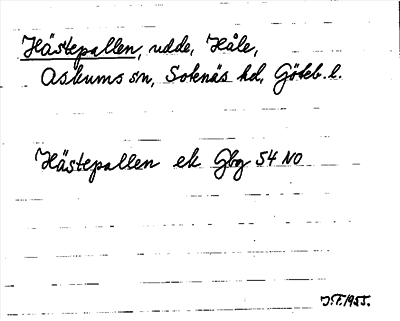 Hästepallen, udde, Håle,
Askums sn, Sotenäs hd, Göteb. l.
Hästepallen ek Gbg 54 NO
J.T. 1955.